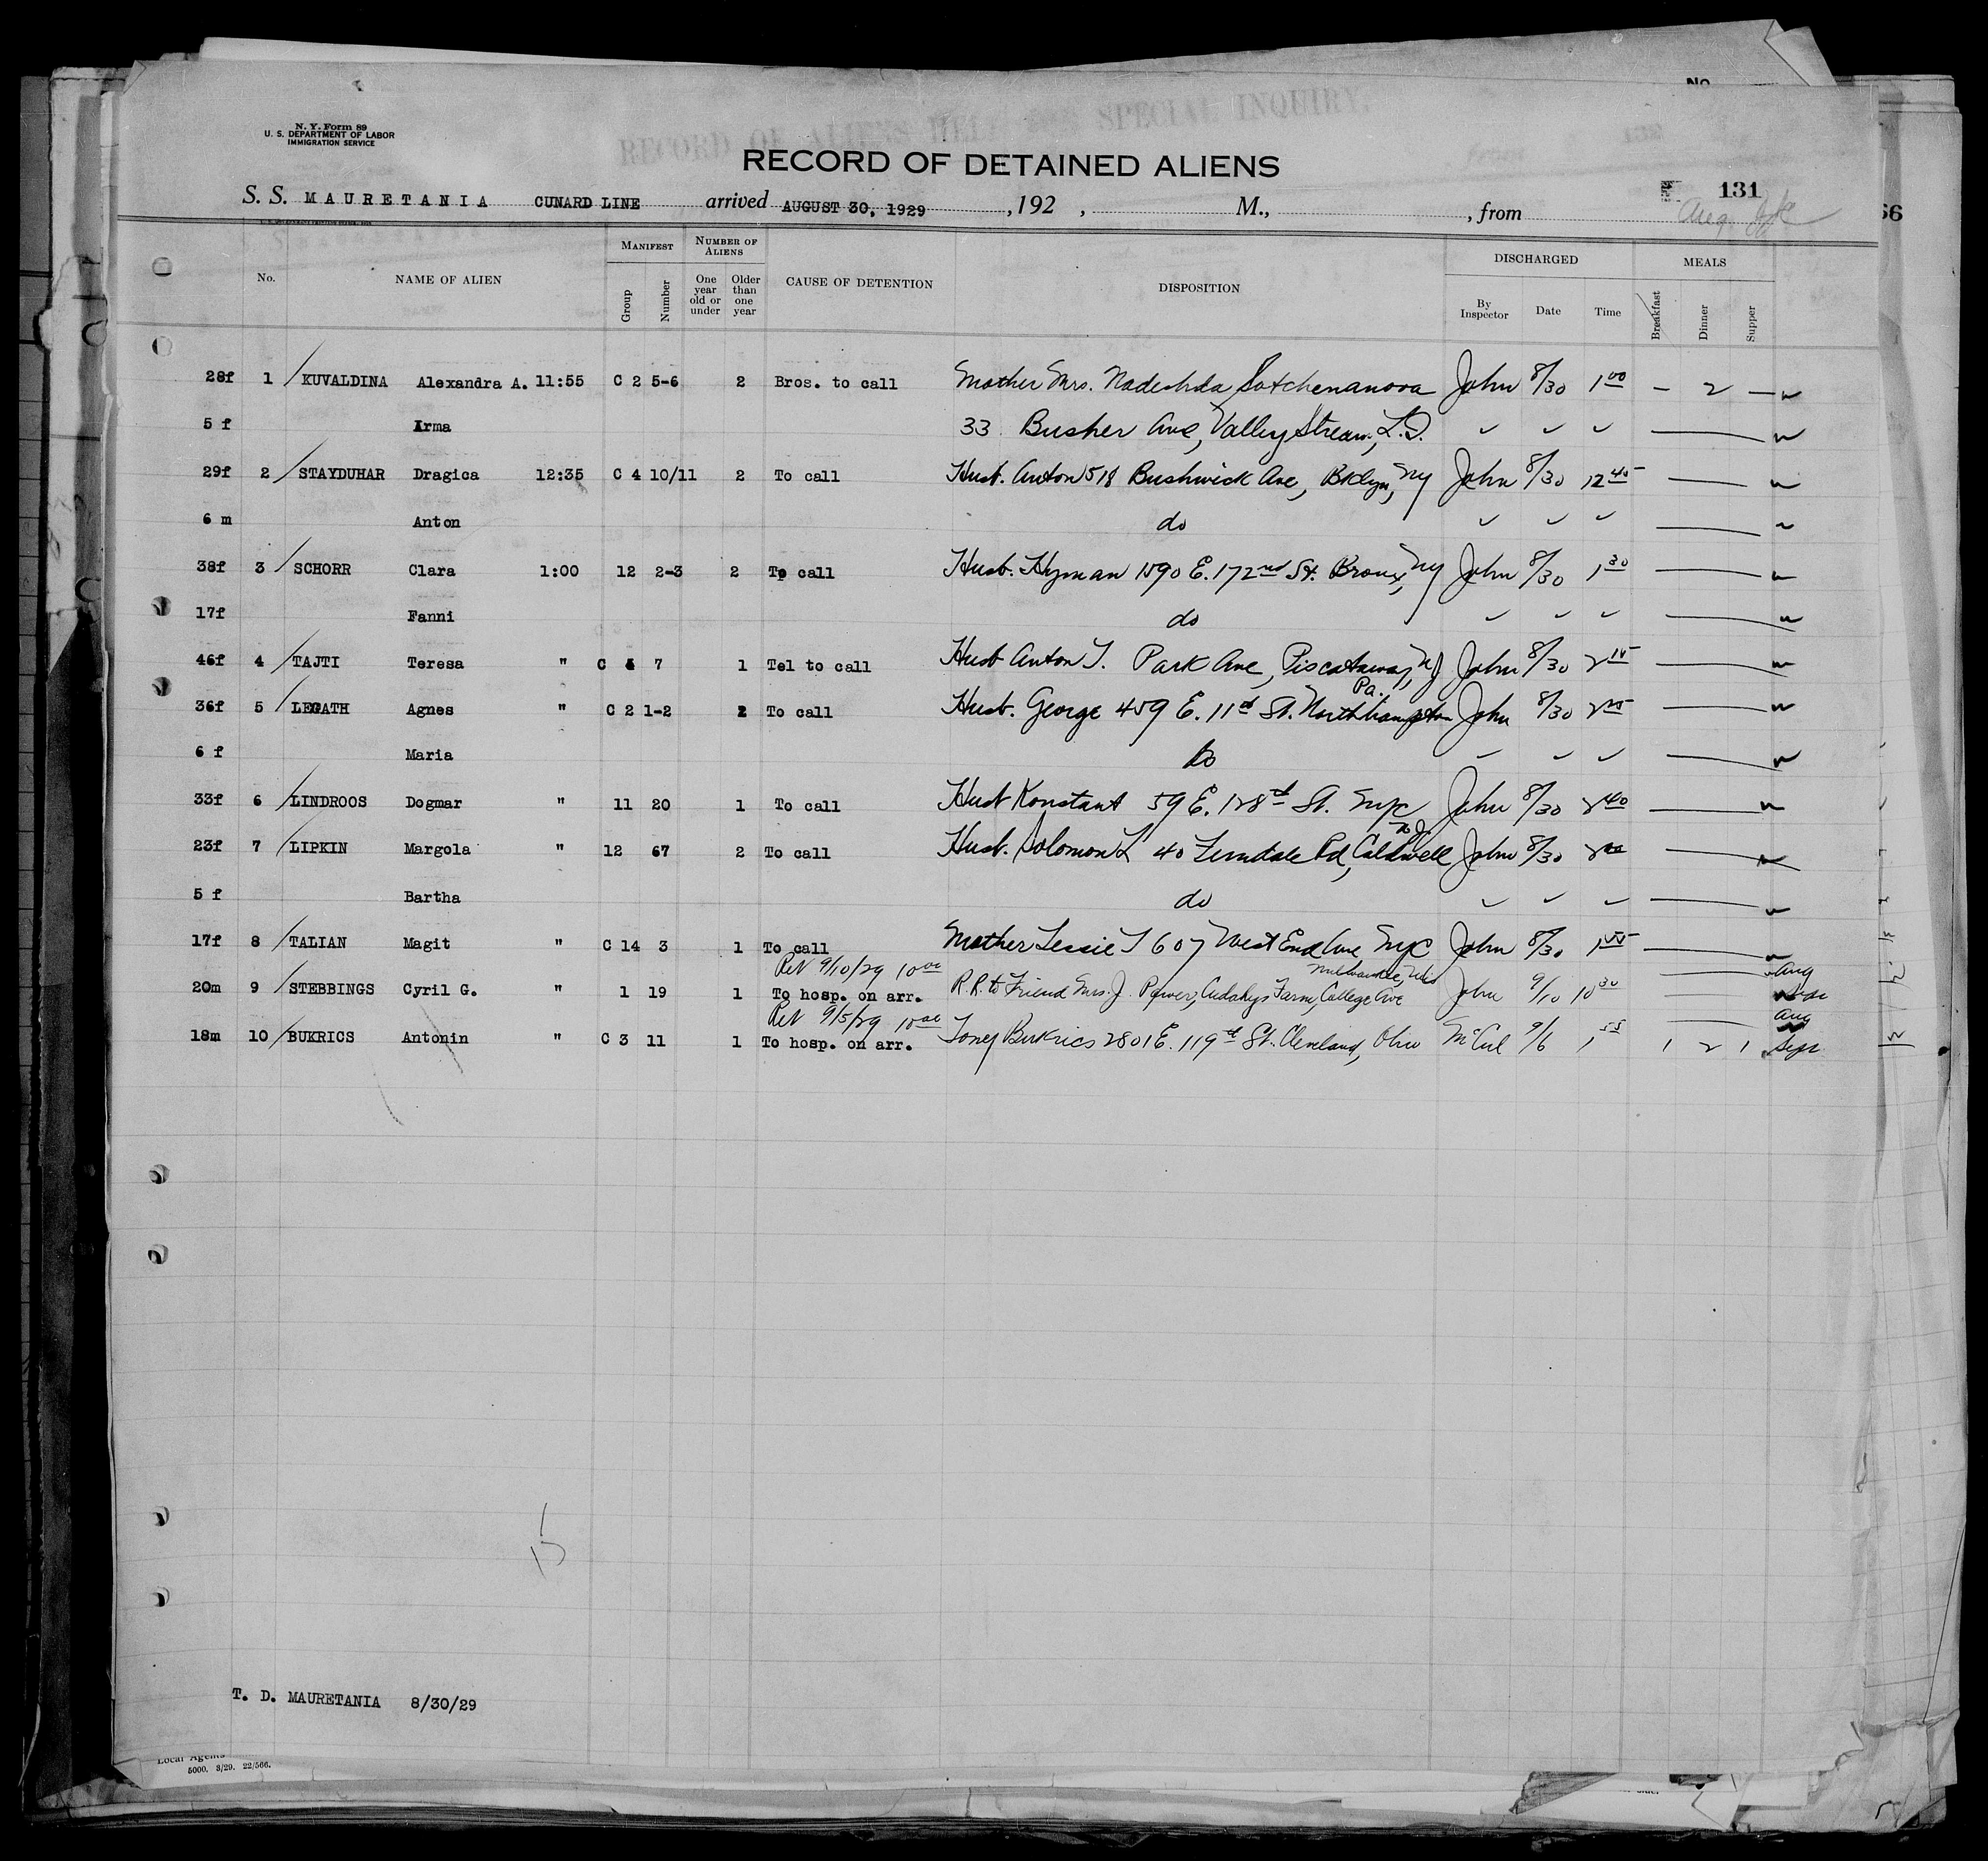 No
N. Y. Form 89
U. S. DEPARTMENT OF LABOR
IMMIGRATION SERVICE
RECORD OF ALIENS HELD SPECIAL INQUIRY.
RECORD OF DETAINED ALIENS
131
S. S. MAURETANIA CUNARD LINE arrived AUGUST 30, 1929, 192 , M., , from
Aug
66
No. NAME OF ALIEN MANIFEST Group Number NUMBER OF ALIENS One year old or under Older than one year CAUSE OF DETENTION DISPOSITION DISCHARGED By Inspector Date Time MEALS Breakfast Dinner Supper
28f 1 KUVALDINA Alexandra A. 11:55 C 2 5-6 2 Bros. to call Mother Mrs. Nadeshda Sotchemanova John 8/30 1 00 – 2 –
5 f Irma 33 Busher Ave, Valley Stream, L.I.
29f 2 STAYDUHAR Dragica 12:35 C 4 10/11 2 To call Husb. Anton 518 Bushwick Ave, Bklyn, NY John 8/30 12 45
6 m Anton do
38f 3 SCHORR Clara 1:00 12 2-3 2 To call Husb. Hyman 1590 E. 172nd St. Bronx, NY John 8/30 1 30
17f Fanni do
46f 4 TAJTI Teresa " C 7 1 Tel to call Husb Anton T. Park Ave, Piscataway, NJ John 8/30 2 15
Pa.
36f 5 LEGATH Agnes " C 2 1-2 2 To call Husb. George 459 E. 11th St. Northhampton John 8/30
6 f Maria Do
33f 6 LINDROOS Dogmar " 11 20 1 To call Husb Konstant 59 E. 128th St. NYC John 8/30 2 40
N.J.
23f 7 LIPKIN Margola " 12 67 2 To call Husb. Solomon L 40 Ferndale Rd, Caldwell John 8/30
5 f Bartha do
17f 8 TALIAN Magit " C 14 3 1 To call Mother Lessie T 607 West End Ave NYC John 8/30 1 55
Ret 9/10/29 10 00 Milwaukee, Wis Aug
20m 9 STEBBINGS Cyril G. " 1 19 1 To hosp. on arr. R.R. to Friend Mrs. J. Power, Cudahys Farm, College Ave John 9/10 10 30
Ret 9/5/29 10 00 Aug
18m 10 BUKRICS Antonin " C 3 11 1 To hosp. on arr. Toney Bukrics 2801 E. 119th St. Cleveland, Ohio McCul 9/6 1 55 1 2 1 Sept
15
T. D. MAURETANIA 8/30/29
Local Agents
5000. 3/29. 22/566.